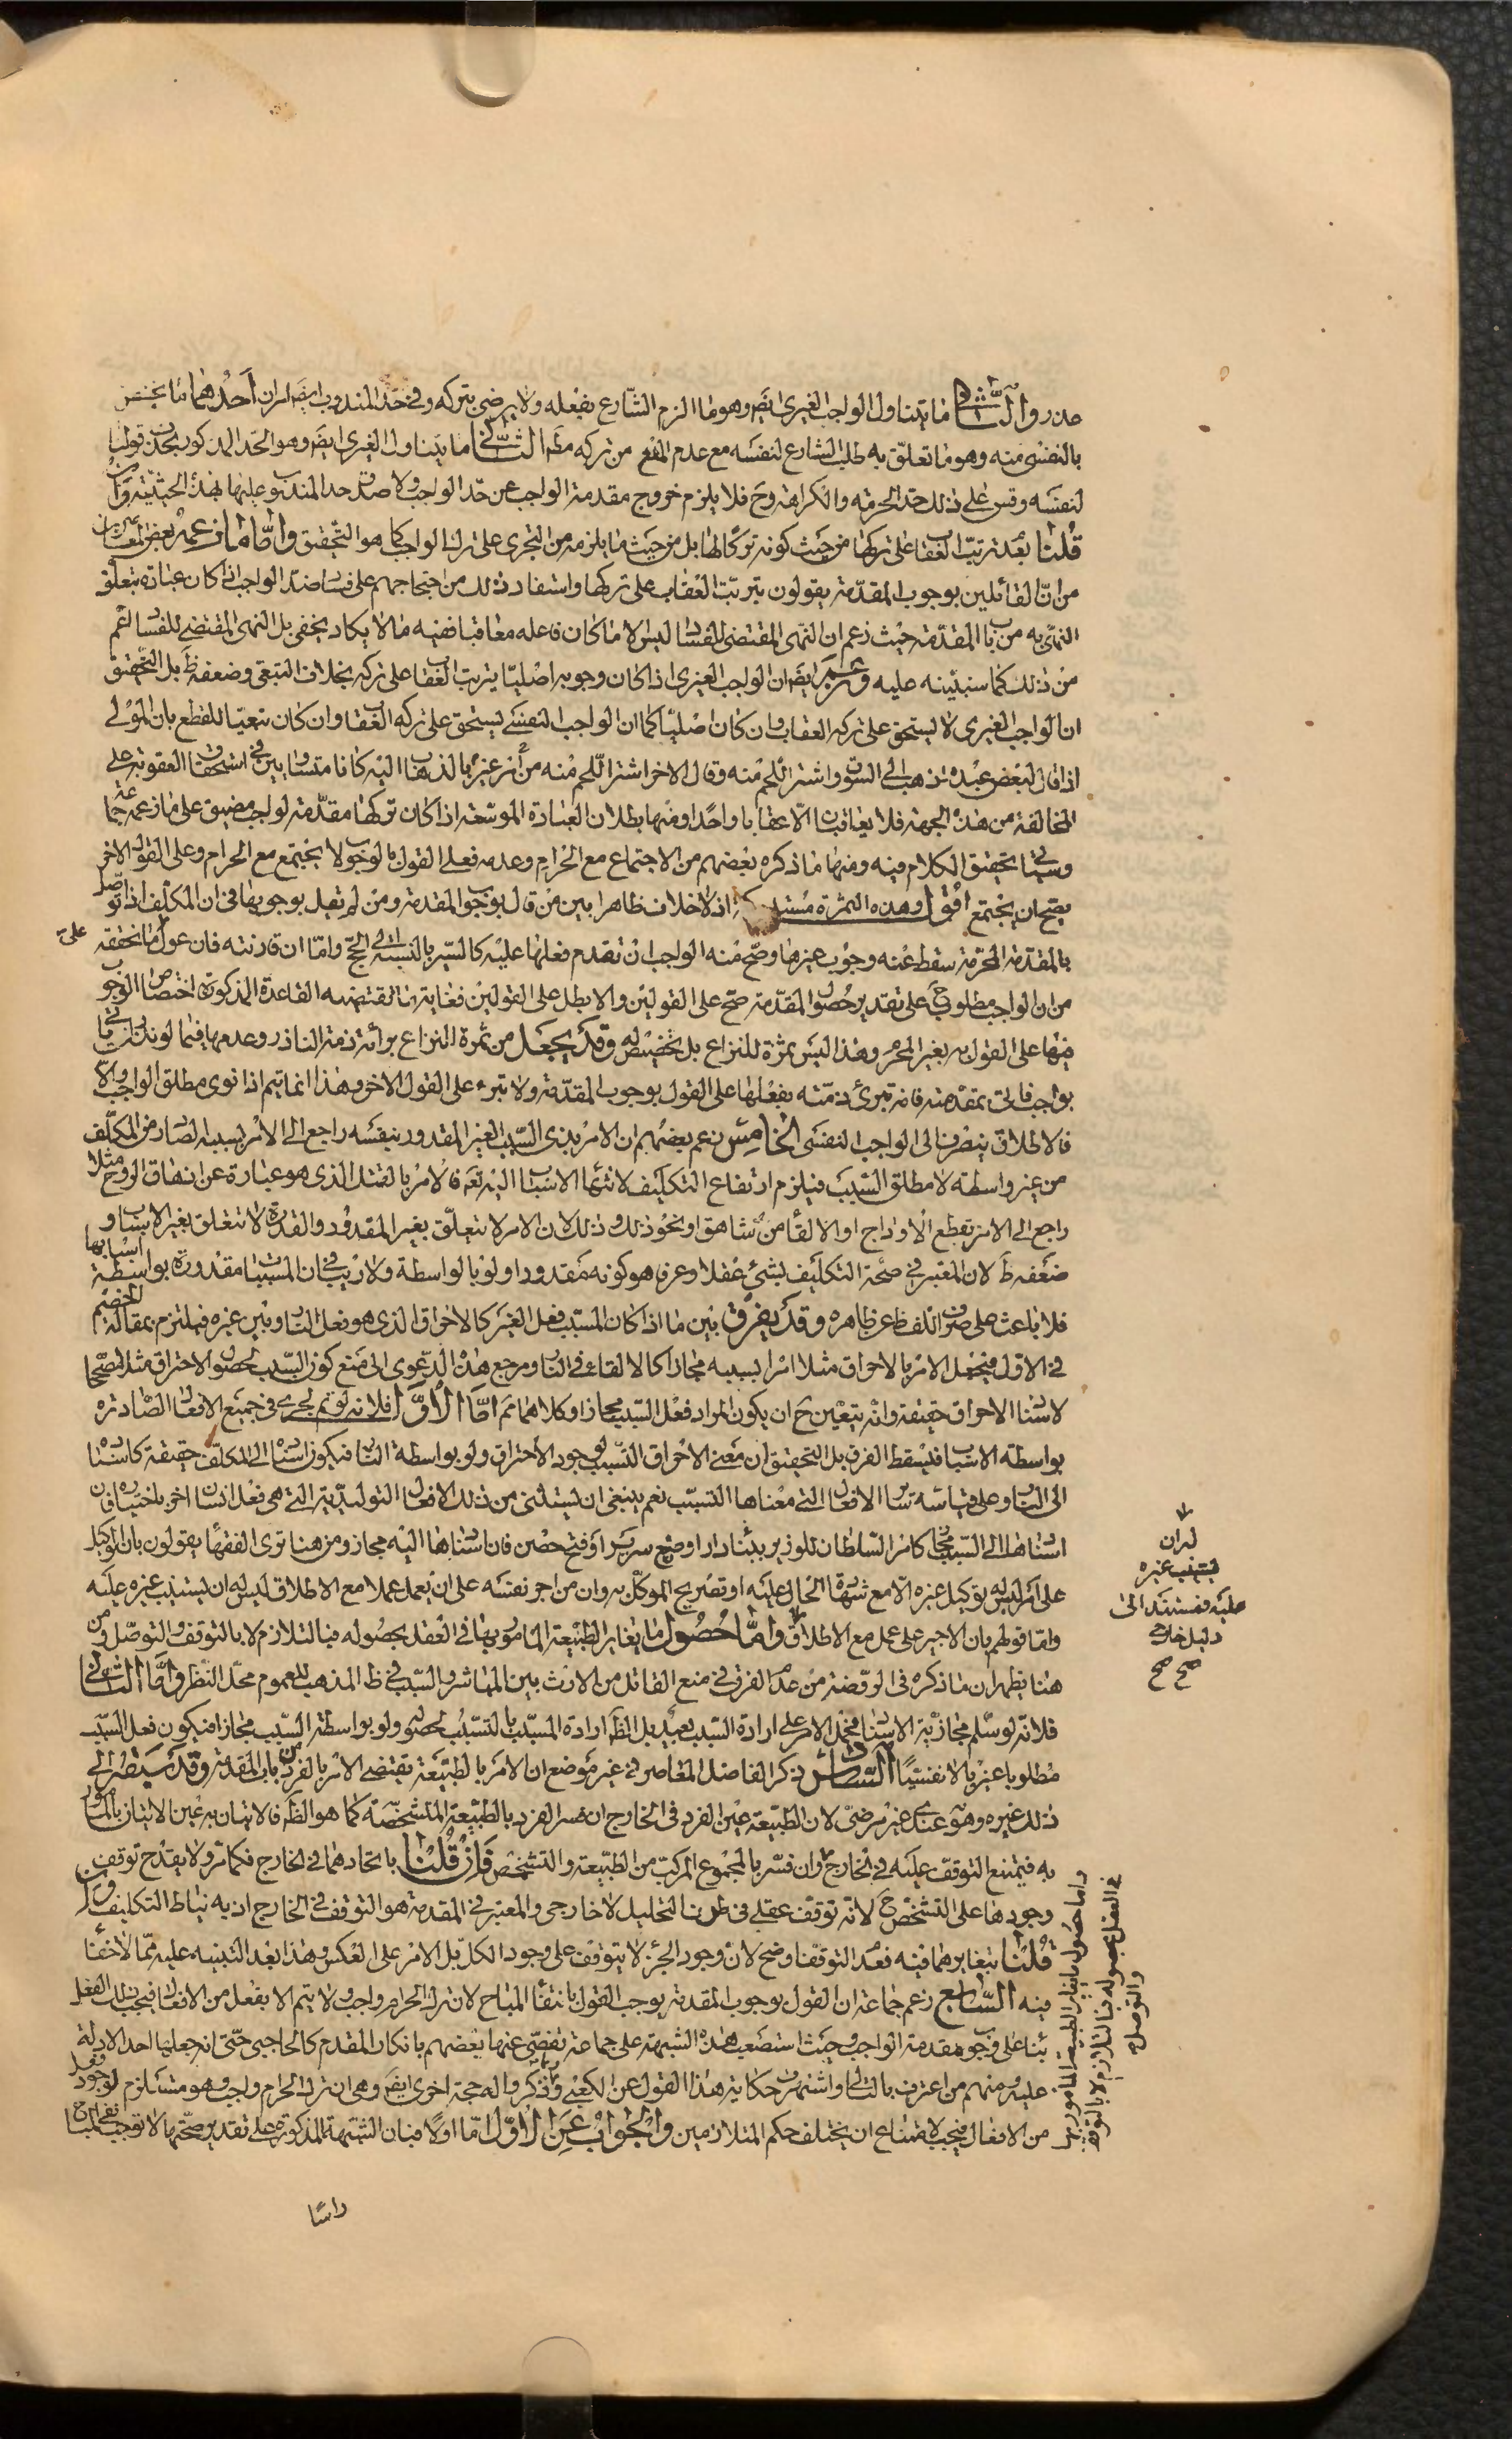 حدروا الثانى ما يتناول الواجب الغيرى ايضم وهو ما الزم الشارع بفعله ولا يرضى بتركه وفى حد المندوب ايضم امران احدهما ما يختص
بالنفسى منه وهو ما تعلق به طلب الشارع لنفسه مع عدم المنع من تركه مظم الثانى ما يتناول الغيرى ايضم وهو الحد المذكور بحذف قولنا
لنفسه وقس على ذلك حد الحرمة والكراهة وح فلا يلزم خروج مقدمة الواجب عن حد الواجب ولا صدق حد المندوب عليها بهذه الحيثية
قلنا بعد ترتب العقاب على تركها من حيث كونه تركا لها بل من حيث ما يلزمه من التجرى على ترك الواجب كما هو التحقيق واما ما زعمه بعض المعاصرين
من ان القائلين بوجوب المقدمة يقولون بترتب العقاب على تركها واستفاد ذلك من احتجاجهم على فساد ضد الواجب اذا كان عبادة بتعلق
النهى به من باب المقدمة حيث زعم ان النهى المقتضى للفساد ليس الا ما كان فاعله معاقبا ففيه ما لا يكاد يخفى بل النهى المقتضى للفساد اعم
من ذلك كما سنبينه عليه وزعم ايضم ان الواجب الغيرى اذا كان وجوبه اصليا يترتب العقاب على تركه بخلاف التبعى وضعفه ظ بل التحقيق
ان الواجب الغيرى لا يستحق على تركه العقاب وان كان اصليا كما ان الواجب النفسى يستحق على تركه العقاب وان كان تبعيا للقطع بان المولى
اذا قال لبعض عبيده اذهب الى السوق واشتر اللحم منه وقال لاخر اشتر اللحم منه من غيره بالذهاب اليه كانا متساويين فى استحقاق العقوبة على
المخالفة من هذه الجهة فلا يعاقبان الا عقابا واحدا ومنها بطلان العبادة الموسعة اذا كان تركها مقدمة لواجب مضيق على ما زعمه جماعة
وسياتى تحقيق الكلام فيه ومنها ما ذكره بعضهم من الاجتماع مع الحرام وعدمه فعلى القول بالوجوب لا يجتمع مع الحرام وعلى القول الاخر
يصح ان يجتمع اقول وهذه الثمرة اذ لا خلاف ظاهرا بين من قال بوجوب المقدمة ومن لم يقل بوجوبها فى ان المكلف اذا توصل
بالمقدمة المحرمة سقط عنه وجوب غيرها وصح منه الواجب ان تقدم فعلها عليه كالسير بالنسبة الى الحج واما ان قارنته فان عول على ما نحققه
من ان الواجب مطلوب على تقدير حصول المقدمة صح على القولين والا بطل على القولين فغاية ما تقتضيه القاعدة المذكورة اختصاص الوجوب
منها على القول به بغير المحرم وهذا ليس ثمرة للنزاع بل تخصيص له وقد يجعل من ثمرة النزاع برائة ذمة الناذر وعدمها فيما لو نذر ان ياتى
بواجب فاتى بمقدمته فانه تبرئ ذمته بفعلها على القول بوجوب المقدمة ولا تبرء على القول الاخر وهذا انما يتم اذا نوى مطلق الواجب والا
فالاطلاق ينصرف الى الواجب النفسى الخامس زعم بعضهم ان الامر بذى السبب الغير المقدور بنفسه راجع الى الامر بسببه الصادر من المكلف
من غير واسطة لا مطلق السبب فيلزم ارتفاع التكليف لانتهاء الاسباب اليه تعم فالامر بالقتل الذى هو عبارة عن ازهاق الروح مثلا
راجع الى الامر بقطع الاوداج او الالقاء من شاهق او نحو ذلك وذلك لان الامر لا يتعلق بغير المقدور والقدرة لا تتعلق بغير الاسباب و
ضعفه ظ لان المعتبر فى صحة التكليف بشئ عقلا وعرفا هو كونه مقدورا ولو بالواسطة ولا ريب فى ان المسببات مقدورة بواسطة اسبابها
فلا باعث على صرف اللفظ عن ظاهره وقد يفرق بين ما اذا كان المسبب فعل الغير كالاحراق الذى هو فعل النار وبين غيره فيلتزم بمقالة الخصم
فى الاول فيجعل الامر بالاحراق مثلا امرا بسببه مجازا كالالقاء فى النار ومرجع هذه الدعوى الى منع كون السبب لحصول الاحراق مثلا مصححا
لاسناد الاحراق حقيقة وانه يتعين ح ان يكون المراد فعل السبب مجازا وكلاهما مم اما الاول فلانه لو تم لجرى فى جميع الافعال الصادرة
بواسطة الاسباب فيسقط الفرق بل التحقيق ان معنى الاحراق التسبب لوجود الاحتراق ولو بواسطة النار فيكون اسناده الى المكلف حقيقة كاسناده
الى النار وعلى قياسه سائر الافعال التى معناها التسبب نعم ينبغى ان يستثنى من ذلك الافعال التوليدية التى هى فعل انسان اخر باختياره فان
اسنادها الى السبب مجاز كامر السلطان للوزير ببناء دار او وضع سرير او فتح حصن فان اسنادها اليه مجاز ومن هنا ترى الفقهاء يقولون بان الوكيل
على امر ليس له توكيل غيره الا مع شهادة الحال عليه او تصريح الموكل به وان من اجر نفسه على ان يعمل عملا مع الاطلاق ليس له ان يستنيب غيره عليه
واما قولهم بان الاجير على عمل مع الاطلاق واما حصول ما يغاير الطبيعة المامور بها فى العقل بحصوله فبالتلازم لا بالتوقف والتوصل ومن
هنا يظهر ان ما ذكره فى الروضة من عدم الفرق فى منع القاتل من الارث بين المباشر والسبب فى ظ المذهب للعموم محل النظر واما الثانى
فلانه لو سلم مجازية الاسناد فحمل الامر على ارادة السبب بعيد بل الظ ارادة المسبب بالتسبب لحصوله ولو بواسطة السبب مجازا فيكون فعل السبب
مطلوبا غيريا لا نفسيا السادس ذكر الفاضل المعاصر فى غير موضع ان الامر بالطبيعة يقتضى الامر بالفرد من باب المقدمة وقد سبقه الى
ذلك غيره وهو عندى غير مرضى لان الطبيعة عين الفرد فى الخارج ان فسر الفرد بالطبيعة المتشخصة كما هو الظ فالاتيان به عين الاتيان بالمامور
به فيمتنع التوقف عليه فى الخارج وان فسر بالمجموع المركب من الطبيعة والتشخص فان قلنا باتحادهما فى الخارج فكما مر ولا يقدح توقف
وجودها على التشخص ح لانه توقف عقلى فى ظرف التحليل لا خارجى والمعتبر فى المقدمة هو التوقف فى الخارج اذ به يناط التكليف وان
قلنا بتغايرهما فيه فعدم التوقف اوضح لان وجود الجزء لا يتوقف على وجود الكل بل الامر على العكس وهذا بعد التنبيه عليه مما لا خفاء
فيه السابع زعم جماعة ان القول بوجوب المقدمة يوجب القول بانتفاء المباح لان ترك الحرام واجب ولا يتم الا بفعل من الافعال فيجب ذلك الفعل
بناء على وجوب مقدمة الواجب وحيث استصعب هذه الشبهة على جماعة تفصى عنها بعضهم بانكار المقدم كالحاجبى حتى انه جعلها احد الادلة
عليه ومنهم من اعترف بالتالى واشتهرت حكاية هذا القول عن الكعبى وذكروا له حجة اخرى ايضم وهى ان ترك الحرام واجب وهو مستلزم لوجود فعل
من الافعال فيجب لامتناع ان يختلف حكم المتلازمين والجواب عن الاول اما اولا فبان الشبهة المذكورة على تقدير صحتها لا توجب نفى المباح
راسا
له ان
يستنيب غيره
عليه فمستند الى
دليل خارجى
صح صح
واما حصول ما يغاير الطبيعة المامور بها
فى العقل بحصوله فبالتلازم لا بالتوقف
والتوصل